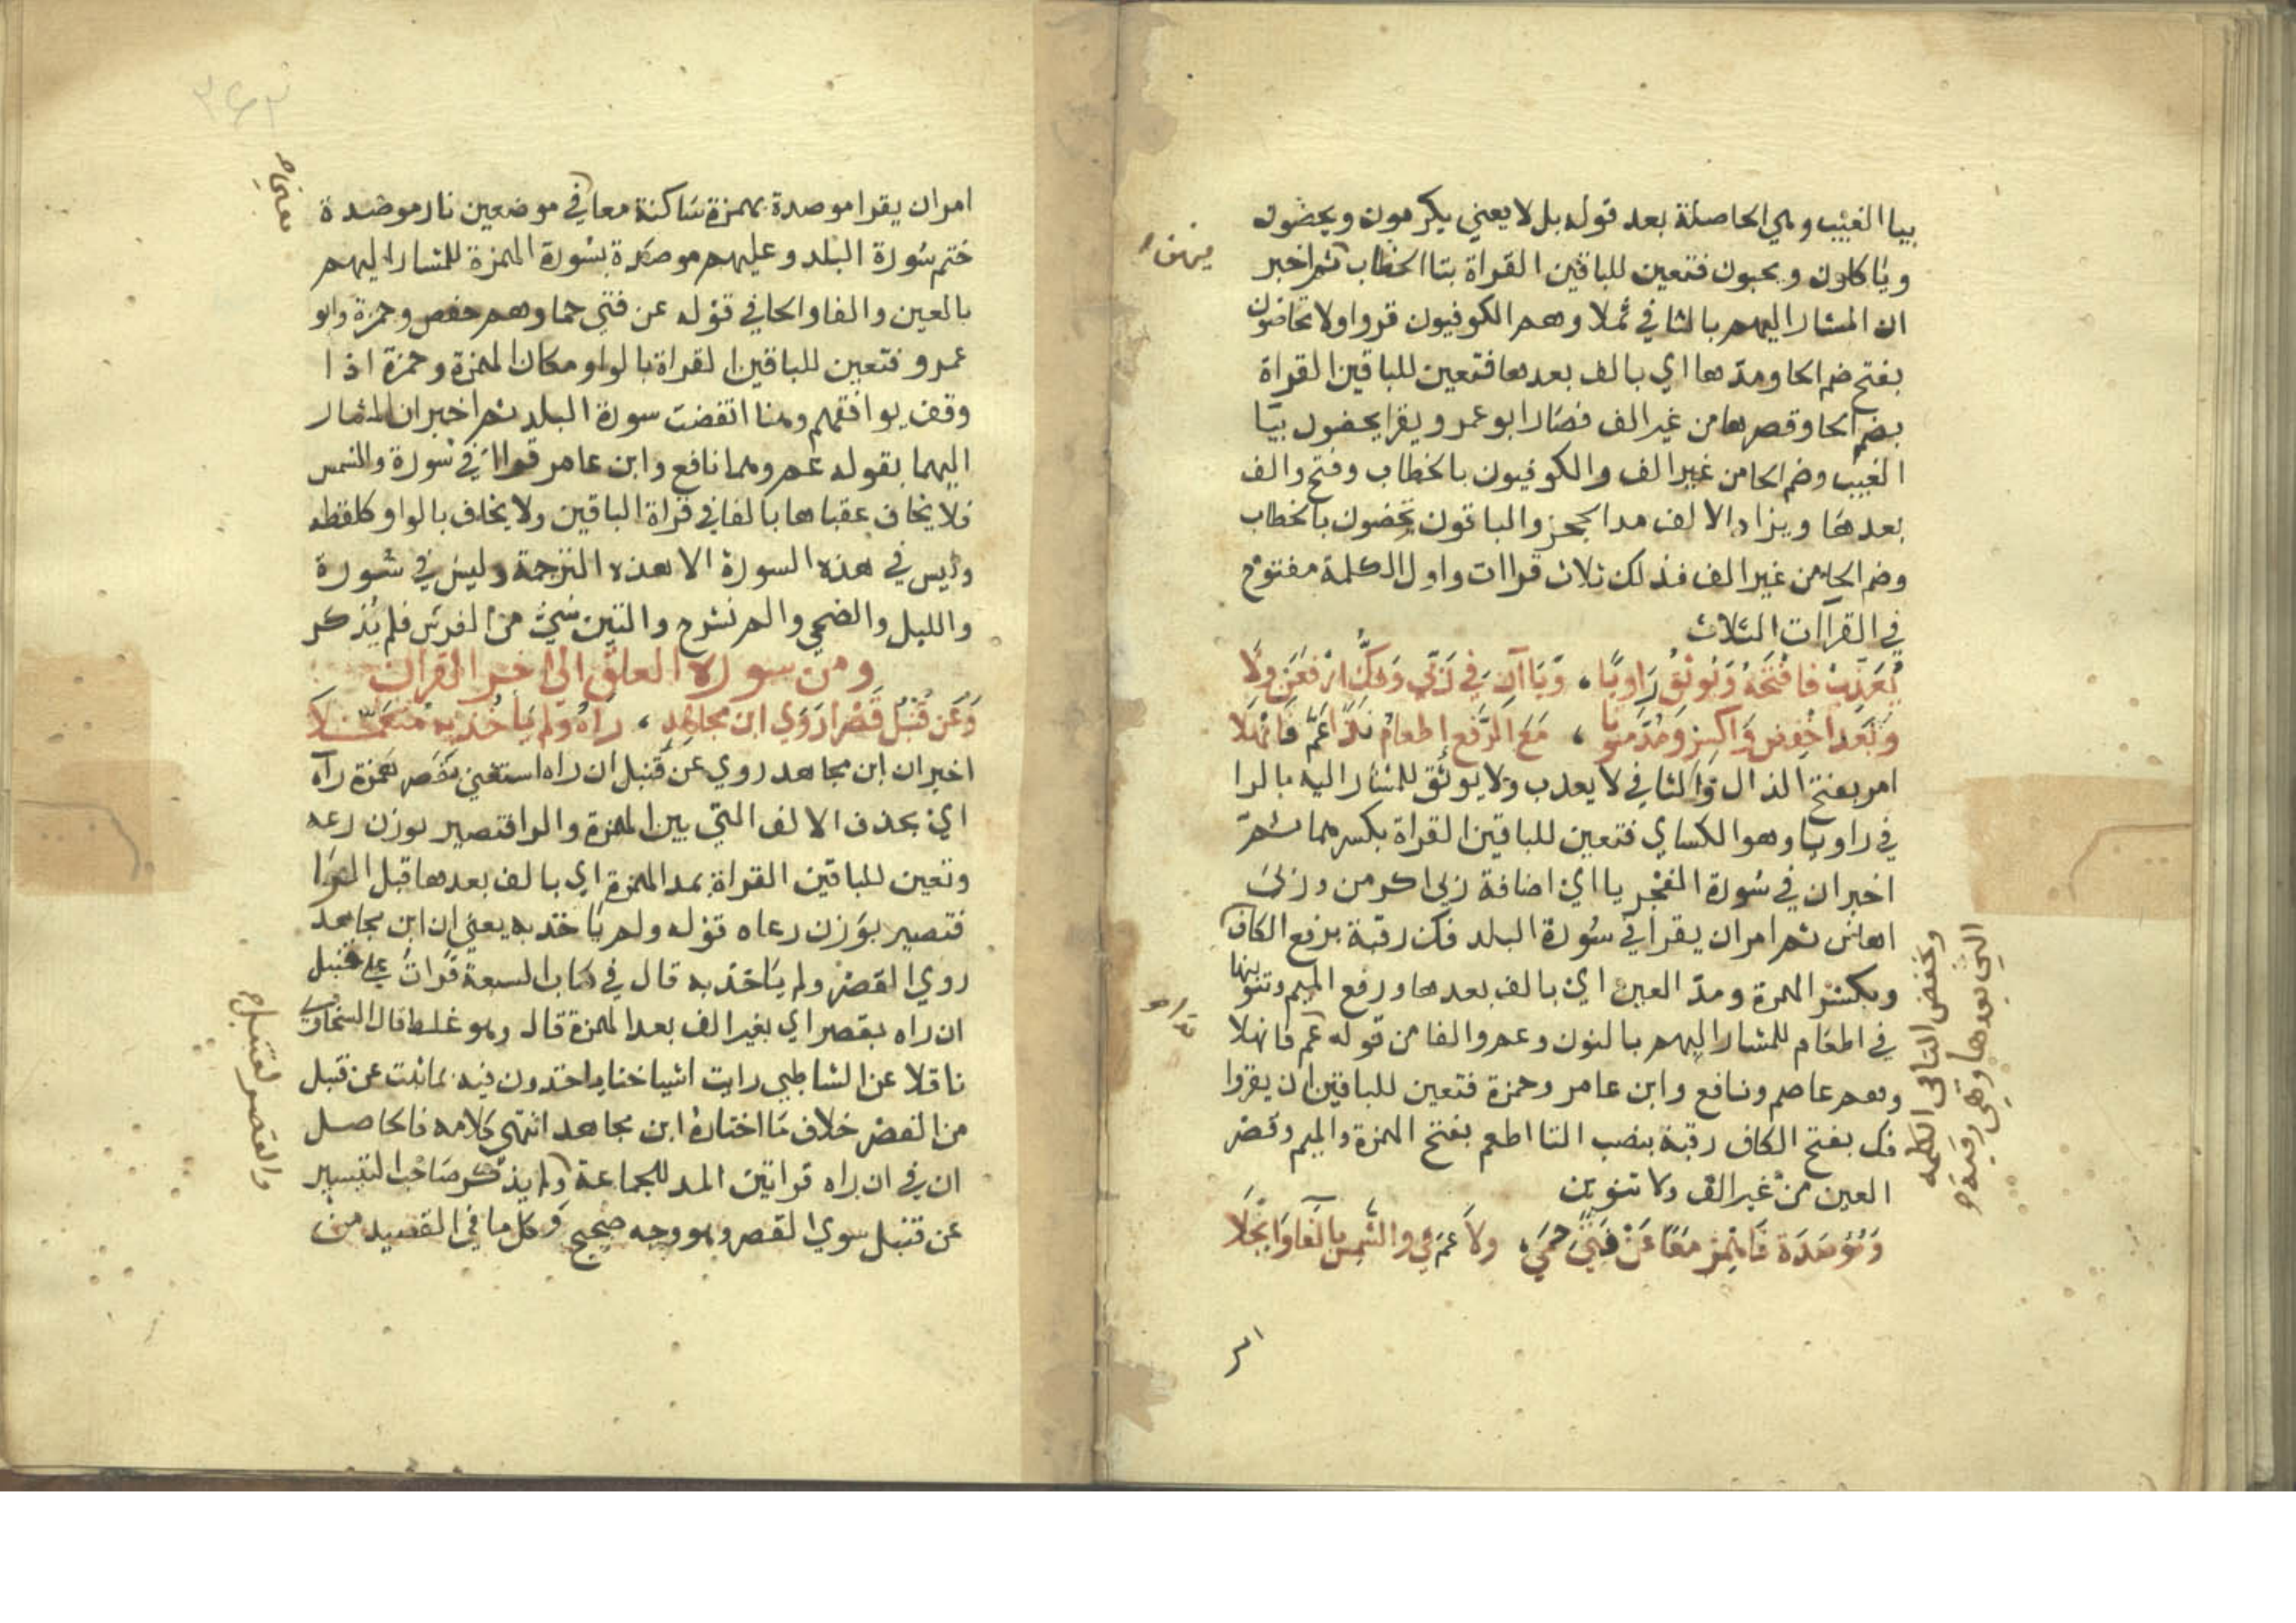 بيا الغيب وهي الحاصلة بعد قوله بل لا يعني يكرمون ويحضون
وياكلون ويحبون فتعين للباقين القراة بتا الخطاب ثم اخبر
ان المشار اليهم بالثا في ثملا وهم الكوفيون قروا ولا تحاضون
بفتح ضم الحا ومدها اي بالف بعدها فتعين للباقين القراة
بضم الحا وقصرها من غير الف فصار ابو عمرو يقرا يحضون بيا
الغيب وضم الحا من غير الف والكوفيون بالخطاب وفتح والف
بعدها ويزاد الالف مدا لحجز والباقون تحضون بالخطاب
وضم الحا من غير الف فذلك ثلاث قراات واول الكلمة مفتوح
في القراات الثلاث
يُعَذِّبُ فَافْتَحْهُ وَيُوثِقُ رَاوِيًا، وَيَاآنِ فِي رَبِّي وَفَكُّ ارْفَعَنْ وِلَا
وَبَعْدُ اخْفِضَنْ وَاكْسِرْ وَمُدَّ مُنَوِّنًا، مَعَ الرَّفْعِ إِطْعَامٌ نَدًا عَمَّ فَانْهَلَا
امر بفتح الذال والثا في لا يعذب ولا يوثق للمشار اليه بالرا
في راويا وهو الكساي فتعين للباقين القراة بكسرهما ثم
اخبر ان في سورة الفجر يااي اضافة ربي اكرمن وربي
اهانن ثم امر ان يقرا في سورة البلد فك رقبة برفع الكاف
وبكسر الهمزة ومد العين اي بالف بعدها ورفع الميم وتنوينها
في اطعام للمشار اليهم بالنون وعم والفا من قوله عم فانهلا
وهم عاصم ونافع وابن عامر وحمزة فتعين للباقين ان يقروا
فك بفتح الكاف رقبة بنصب التا اطعم بفتح الهمزة والميم وقصر
العين من غير الف ولا تنوين
وَمُؤْصَدَة فَاهْمِزْ مَعًا عَنْ فَتًى حِمًى، ولا عَمَّ في والشَّمْسِ بِالْفَا وَانْجَلَا
وبخفض التا في الكلمة
التي بعدها وهي رقبة ح
امر ان يقرا موصدة بهمزة ساكنة معا في موضعين نار موصدة
ختم سورة البلد وعليهم موصدة بسورة الهمزة للمشار اليهم
بالعين والفا والحا في قوله عن فتى حما وهم حفص وحمزة وابو
عمرو فتعين للباقين القراة بالواو مكان الهمزة وحمزة اذا
وقف يوافقهم وهنا انقضت سورة البلد ثم اخبر ان المشار
اليهما بقوله عم وهما نافع وابن عامر قراا في سورة والشمس
فلا يخاف عقباها بالفا في قراة الباقين ولا يخاف بالواو كلفظه
وليس في هذه السورة الا هذه الترجمة وليس في سورة
والليل والضحى والم نشرح والتين شي من الفرش فلم يذكر
ومن سورة العلق الى اخر القران
وَعَنْ قُنْبُلٍ قَصْرًا رَوَى ابن مجاهدٍ، رَآهُ ولم يَأْخُذْ بِهِ مُتَعَمِّلَا
اخبر ان ابن مجاهد روي عن قنبل ان راه استغنى بقصر همزة راه
اي بحذف الالف التي بين الهمزة والها فتصير بوزن رعه
وتعين للباقين القراة بمد الهمزة اي بالف بعدها قبل الها
فتصير بوزن رعاه قوله ولم ياخذ به يعني ان ابن مجاهد
روي القصر ولم ياخذ به قال في كتاب السبعة قرات على قنبل
ان راه بقصر اي بغير الف بعد الهمزة قال وهو غلط قال السخاوي
ناقلا عن الشاطبي رايت اشياخنا ياخذون فيه بما ثبت عن قنبل
من القصر خلاف ما اختاره ابن مجاهد انتهى كلامه فالحاصل
ان في ان راه قراتين المد للجماعة ولم يذكر صاحب التيسير
عن قنبل سوي القصر وهو وجه صحيح وكل ما في القصيد من
يعني ح
والقصر لقنبل ح